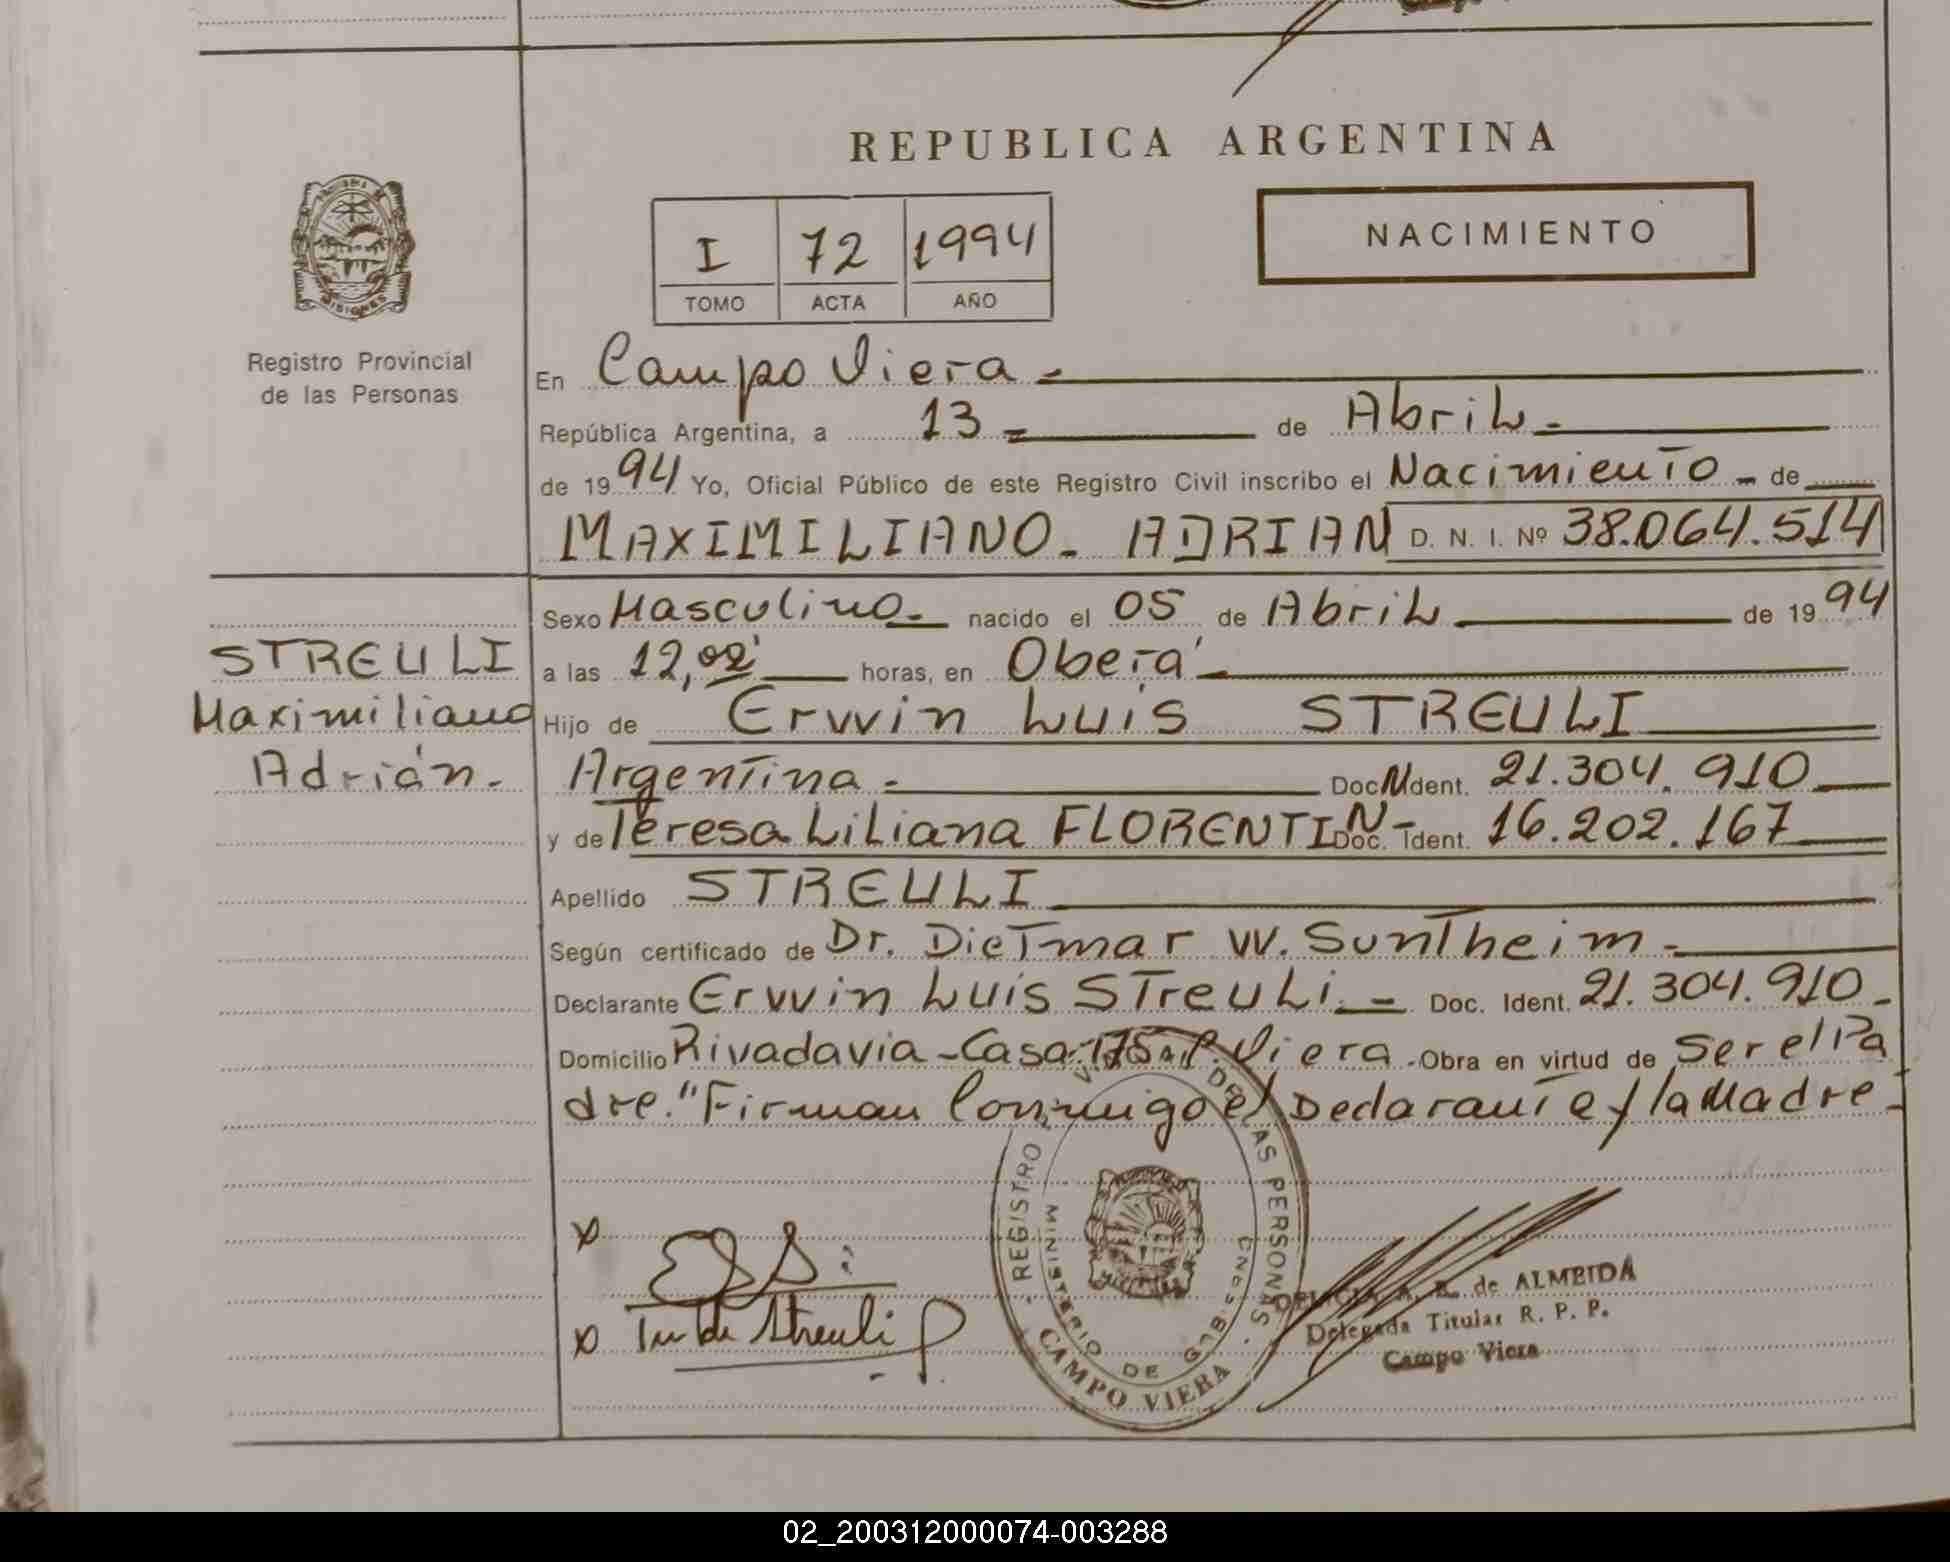 REPUBLICA ARGENTINA
NACIMIENTO
I 72 1994
TOMO ACTA AÑO
Registro Provincial
de las Personas
En Campo Viera -
República Argentina, a 13 - de Abril -
de 1994 Yo, Oficial Público de este Registro Civil inscribo el Nacimiento - de
MAXIMILIANO - ADRIAN D. N. I. Nº 38.064.514
Sexo Masculino - nacido el 05 de Abril de 1994
STREULI
Maximiliano
Adrián -
a las 12,02' horas, en Oberá -
Hijo de Erwin Luis STREULI
Argentina - Doc. Ident. 21.304.910
y de Teresa Liliana FLORENTIN - Doc. Ident. 16.202.167
Apellido STREULI
Según certificado de Dr. Dietmar W. Suntheim -
Declarante Erwin Luis Streuli - Doc. Ident. 21.304.910 -
Domicilio Rivadavia - Casa 175 - C. Viera - Obra en virtud de Ser el Pa
dre." Firman Conmigo el Declarante y la Madre -
x
x T de Streuli
REGISTRO DE LAS PERSONAS
MINISTERIO DE GOB
CAMPO VIERA
A. R. de ALMEIDA
Delegada Titular R. P. P.
Campo Viera
02_200312000074-003288